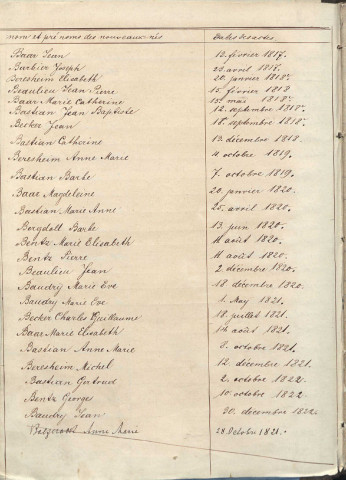 nom et prénoms des nouveaux-nés Dates des actes
Baar Jean 12. février 1817.
Barbier Joseph 23. avril 1818.
Beresheim Elisabeth 20. janvier 1818.
Beaulieu Jean Pierre 15. février 1818
Baar Marie Catherine 15. mai 1818.
Bastian Jean Baptiste 12. septembre 1818.
Becker Jean 18. septembre 1818.
Bastian Catherine 13. décembre 1818.
Beresheim Anne Marie 4 octobre 1819.
Bastian Barbe 7 octobre 1819.
Baar Magdeleine 20. janvier 1820.
Bastian Marie Anne 25. avril 1820.
Bergdoll Barbe 13. juin 1820.
Bentz Marie Elisabeth 11 août 1820.
Bentz Pierre 11 août 1820.
Beaulieu Jean 2. décembre 1820.
Baudry Marie Eve 18 décembre 1820.
Baudry Marie Eve 1. May 1821.
Becker Charles Guillaume 18. juillet 1821.
Baar Marie Elisabeth 14. août 1821.
Bastian Anne Marie 8. octobre 1821.
Beresheim Michel 12. décembre 1821.
Bastian Gertrud 2. octobre 1822.
Bentz Georges 10. octobre 1822.
Baudry Jean 30. décembre 1822.
Anne Marie 28 Octobre 1821.